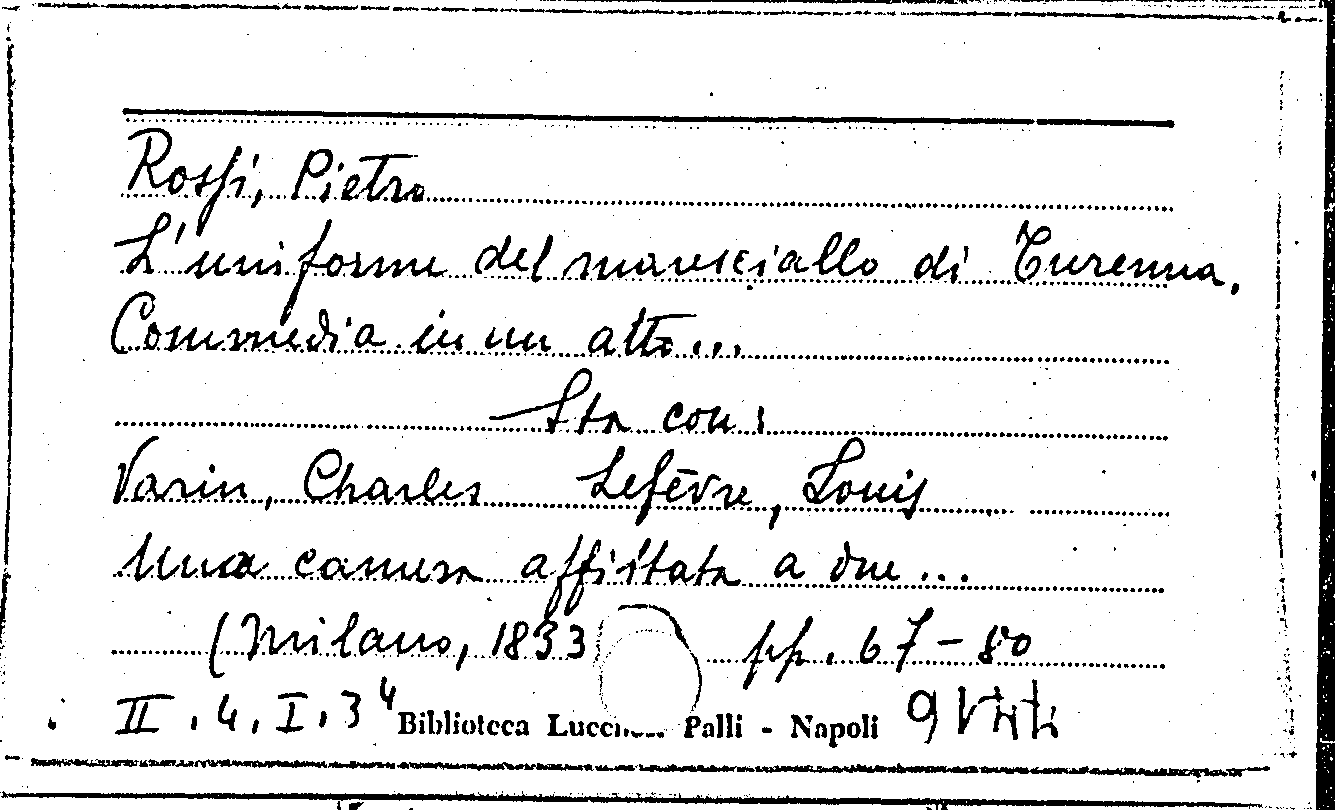 Rossi, Pietro
L'uniforme del maresciallo di Turenna.
Commedia in un atto...
Sta con:
Varin, Charles Lefèvre, Louis
Una camera affittata a due...
(Milano, 1833 pp. 67-80
II.4.I.3⁴ Biblioteca Lucchesi Palli - Napoli